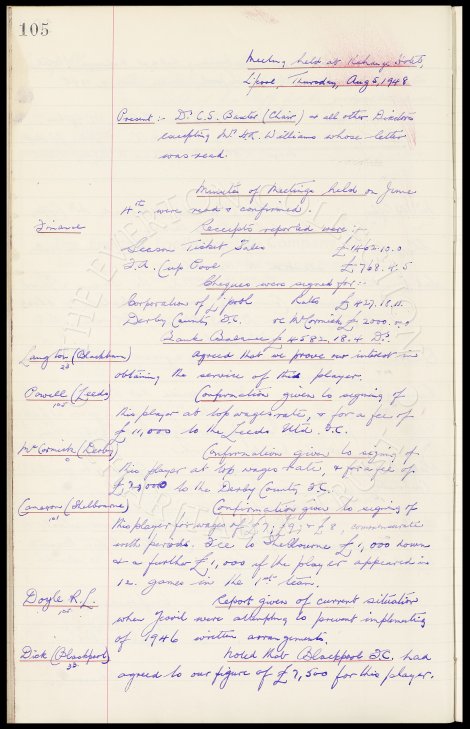 105
Meeting held at Exchange Hotel,
L'pool, Thursday, Aug 5, 1948
Present :- Dr C.S. Baxter (Chair) & all other Directors
excepting Mr. Williams whose letter
was read.
Minutes of Meetings held on June
4th were read & confirmed.
Finance Receipts reported were :-
Season Ticket Sales £1402.10.0
F.A. Cup Pool £768.4.5
Cheques were signed for :-
Corporation of L'pool Rates £427.18.11.
Derby County F.C. re McCormick £2000.0.0
Bank Balance £4582.18.4 Dr.
Langton (Blackburn) agreed that we prove our interest in
23
obtaining the service of this player.
Powell (Leeds) Confirmation given to signing of
105
this player at top wages rate, & for a fee of
£11,000 to the Leeds Utd. F.C.
McCormick (Derby) Confirmation given to signing of
this player at top wages rate, & for a fee of
to the Derby County F.C.
Cameron (Shelbourne) Confirmation given to signing of
101
this player for wages of £7, £9, & £8, commensurate
with periods. Fee to Shelbourne £1,000 down
& a further £1,000 if the player appeared in
12 games in the 1st team.
Doyle R.L. Report given of current situation
105
when Yeovil were attempting to prevent implementing
of 1946 written arrangements.
Dick (Blackpool) Noted that Blackpool F.C. had
32
agreed to our figure of £7,500 for this player.